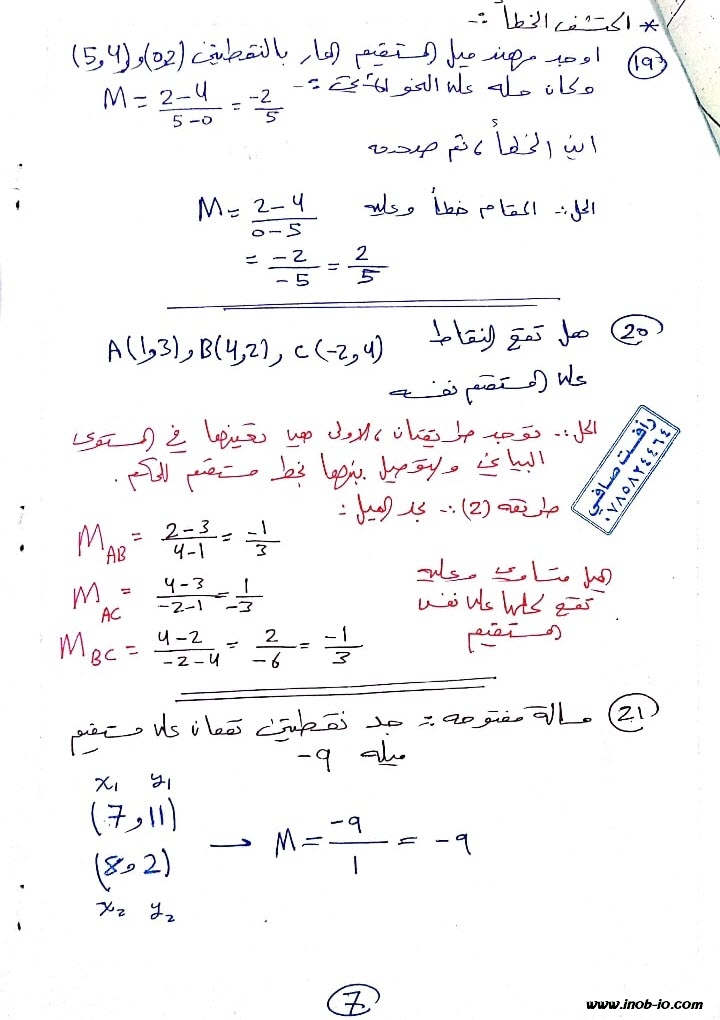 * اكتشف الخطأ :-
(19) اوجد مهند ميل المستقيم المار بالنقطتين (0,2) و (5,4)
وكان حله على النحو الآتي :-
M = 2-4 / 5-0 = -2/5
ابين الخطأ ، ثم صححه
الحل :- المقام خطأ وعليه M = 2-4 / 0-5
= -2/-5 = 2/5
(20) هل تقع النقاط A(1,3) , B(4,2) , C(-2,4)
على المستقيم نفسه
الحل :- توجد طريقتان ، الاولى هي تعيينها في المستوى
البياني والتوصيل بينها بخط مستقيم للحكم .
طريقة (2) :- نجد الميل :
M AB = 2-3 / 4-1 = -1/3
M AC = 4-3 / -2-1 = 1/-3
M BC = 4-2 / -2-4 = 2/-6 = -1/3
الميل متساوي وعليه
تقع كلها على نفس
المستقيم
رأفت صافي
٠٧٨٥٨٢٤٤٦٤
(21) مسالة مفتوحه :- جد نقطتين تقعان على مستقيم
ميله -9
x1 y1
(7,11)
(8,2) → M = -9/1 = -9
x2 y2
7
www.inob-io.com